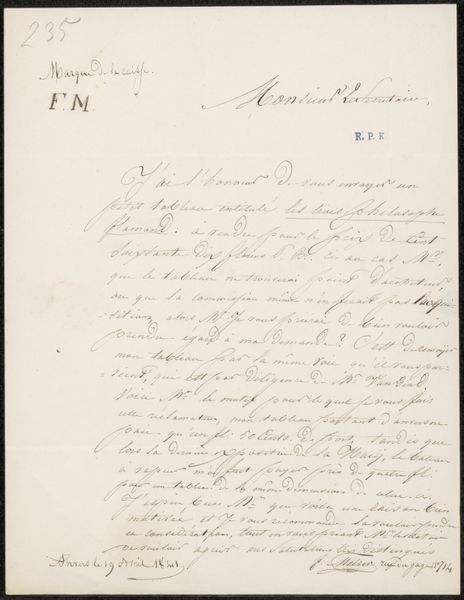 235
Marque de la caisse.
F. M.
Monsieur Le Secretaire,
R. P. K.
J'ai l'honneur De vous envoyer un
petit tableau intitulé les trois philosophe
flamand: à vendre pour le prix de Cent
Soixante dix florins P. B. en au cas Mr.
que le tableau ne trouverai point d'acheteur,
ou que la commission même n'en ferait pas l'acqui
sition, alors Mr. Je vous prierai de bien vouloir
prendre égard à ma demande? C'est de renvoyer
mon tableau par la même voie qu'il vous par-
vient, qui est par diligence de Mr. Van Gend.
Voici Mr. le motif pour le quel je vous fais
cette réclamation, mon tableau partant d'ici
paie qu'un fl: 50 Cents. De port, tandis que
lors la dernière exposition de la Haye, le bateau
à vapeur m'a fait payer près de quatre fl.
pour un tableau de la même dimension de celui ci.
J'espère bien Mr. que voila une raison bien
motivée et Je vous recommande la vouloir prendre
en considération, tout en vous priant Mr.
vouloir agréer mes salutations les distingués
Anvers le 19 Avril 1841
F. Melzer rue du page n° 714